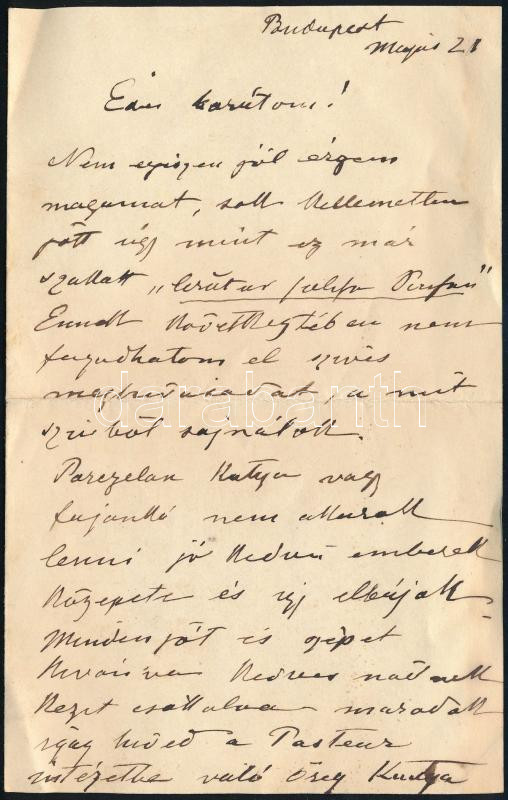 Budapest
Május 21
Édes barátom!
Nem egiszen jól érzem
magamat, sőt kellemetlen
jött úgy mint ez már
szokott
Ennek következtében nem
fogadhatom el szives
meghivásodat, a mit
szivből sajnálok.
Porczelan Kutya vagy
fajankó nem akarok
lenni jó kedvü emberek
közepete és igy elbújok -
Minden jót és szépet
kivánva kedves nődnek
kezet csókolva maradok
igaz hived a Pasteur
intézetbe való öreg Kutya
darabanth